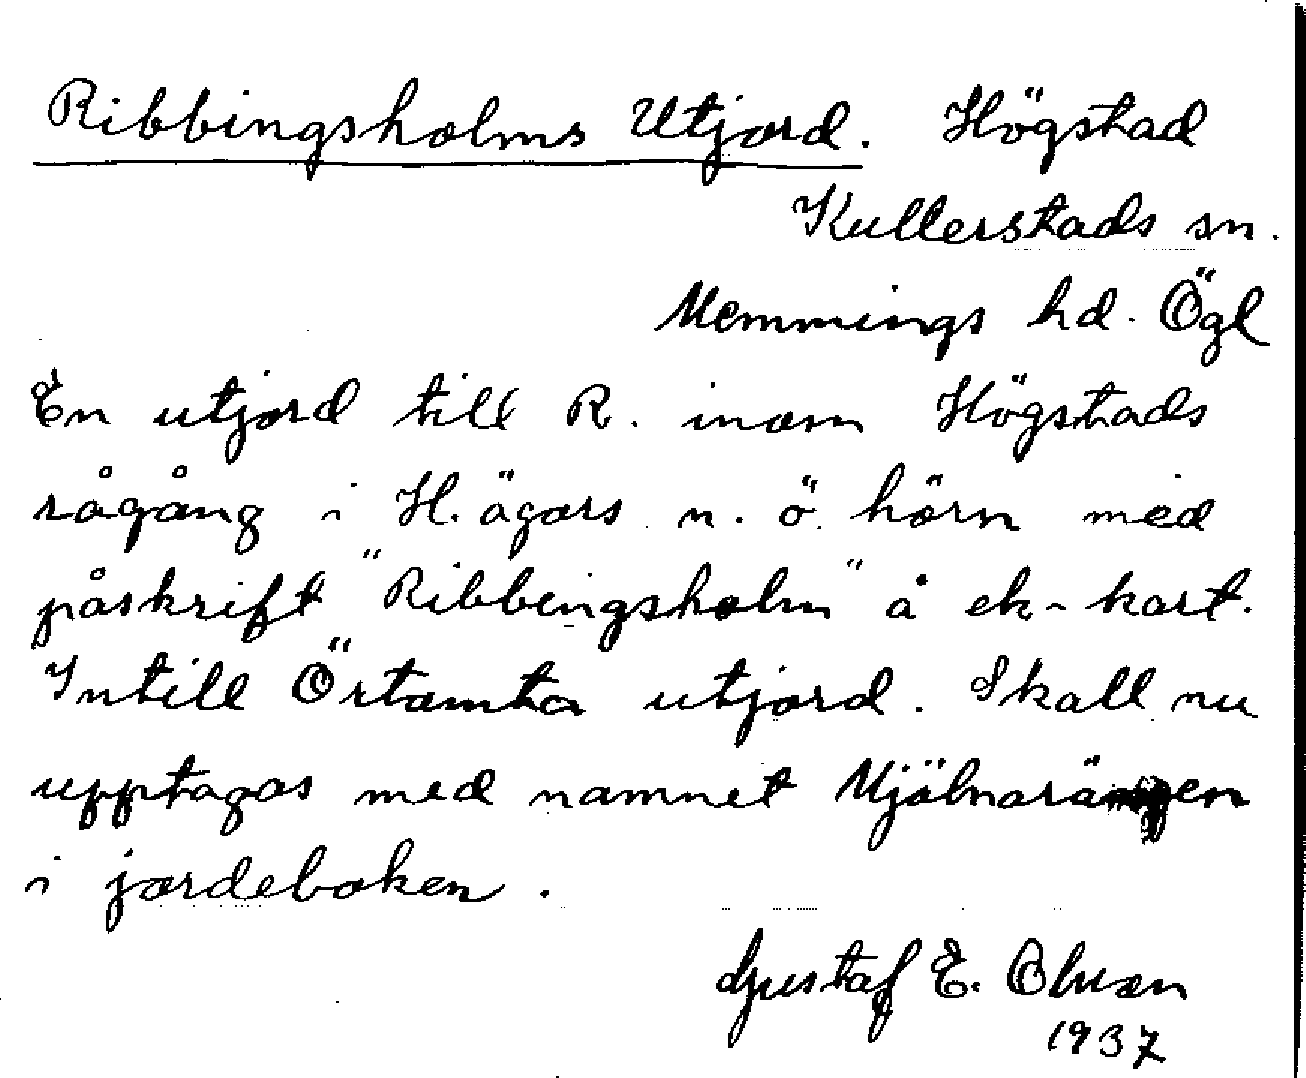 Ribbingsholms Utjord. Högstad
Kullerstads sn.
Memmings hd. Ögl
En utjord till R. inom Högstads
rågång i H. ägors n. ö. hörn med
påskrift "Ribbingsholm" å ek-kart.
Intill Örtomta utjord. Skall nu
upptagas med namnet Mjölnarängen
i jordeboken.
Gustaf E. Olsson
1937